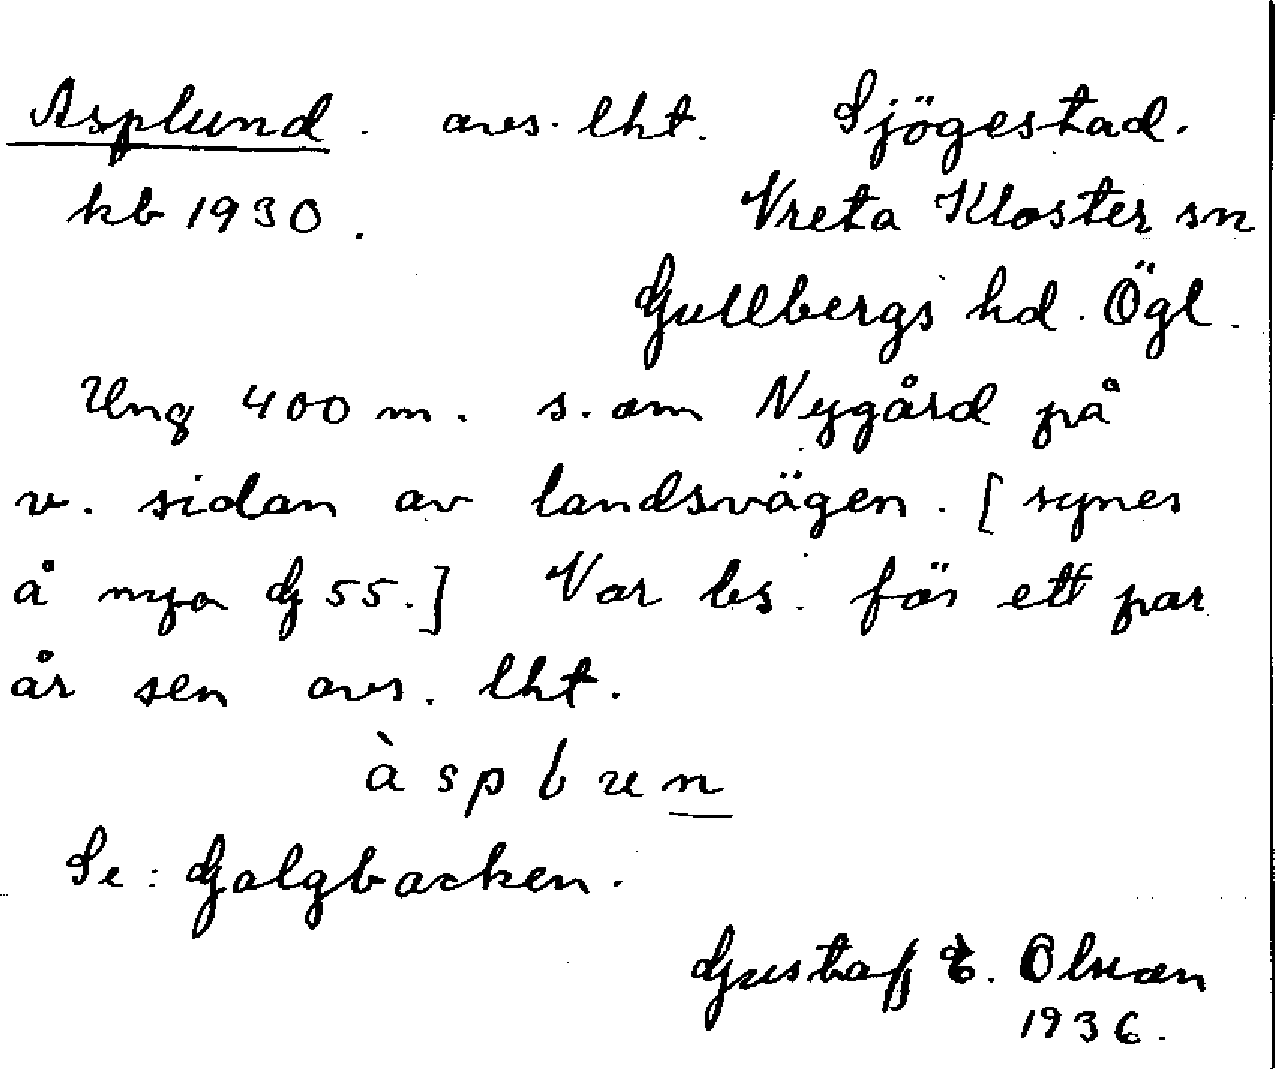 Asplund. avs. lht. Sjögestad.
kb 1930. Vreta Kloster sn
Gullbergs hd. Ögl.
Ung 400 m. s. om Nygård på
v. sidan av landsvägen. [synes
å nya G 55.] Var bs. för ett par
år sen avs. lht.
àsplun
Se: Galgbacken.
Gustaf E. Olsson
1936.